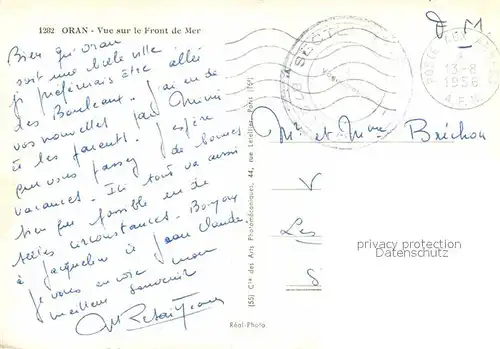 1282 ORAN - Vue sur le Front de Mer
Bien qu'Oran
soit une belle ville
je préférerais être allée
des Bordeaux. J'ai eu de
vos nouvelles par Mimi
et les parents. J'espère
que vous passez de bonnes
vacances. Ici tout va aussi
bien que possible en de
telles circonstances. Bonjour
à Jacqueline et Jean Claude
je vous envoie mon
meilleur souvenir
F. M.
Mr et Mme Bréchon
V
Les
S
privacy protection
PrivacyProtection
(55) Cie des Arts Photomécaniques, 44, rue Letellier - Paris (15e)
Réal-Photo